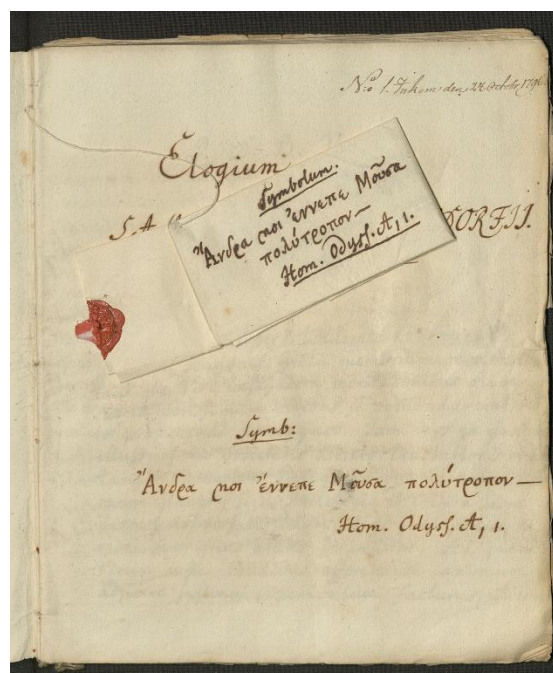 N:o 1. Inkom den 22 Octobr 1796
Elogium
S. A.
DORFII.
Symbolum.
Ἄνδρα μοι ἔννεπε Μοῦσα
πολύτροπον—
Hom. Odyss. A, 1.
Symb:
Ἄνδρα μοι ἔννεπε Μοῦσα πολύτροπον—
Hom. Odyss. A, 1.